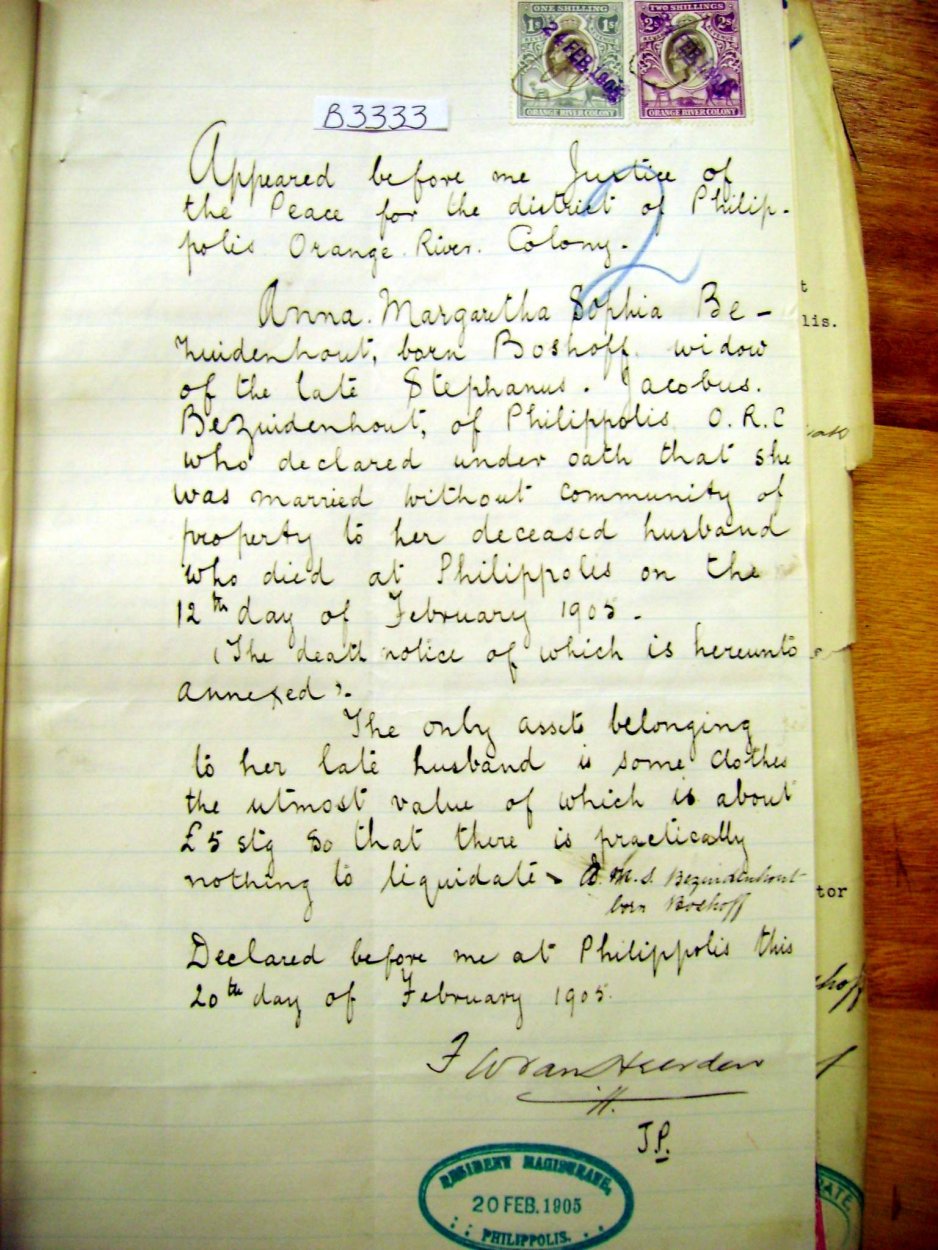 ONE SHILLING
1s 1s
ORANGE RIVER COLONY
TWO SHILLINGS
2s 2s
ORANGE RIVER COLONY
FEB. 1905
B3333
2
Appeared before me Justice of
the Peace for the district of Philip-
polis Orange River. Colony.
Anna. Margaretha Sophia Be-
zuidenhout, born Boshoff. widow
of the late Stephanus. Jacobus.
Bezuidenhout, of Philippolis O.R.C
who declared under oath that she
was married without community of
property to her deceased husband
who died at Philippolis on the
12th day of February 1905.
(The death notice of which is hereunto
annexed).
The only assets belonging
to her late husband is some clothes
the utmost value of which is about
£5 stg so that there is practically
nothing to liquidate. M.S. Bezuidenhout
born Boshoff
Declared before me at Philippolis this
20th day of February 1905.
F W van Heerden
J.P.
RESIDENT MAGISTRATE,
20 FEB. 1905
PHILIPPOLIS.
lis.
tor
hoff
ATE